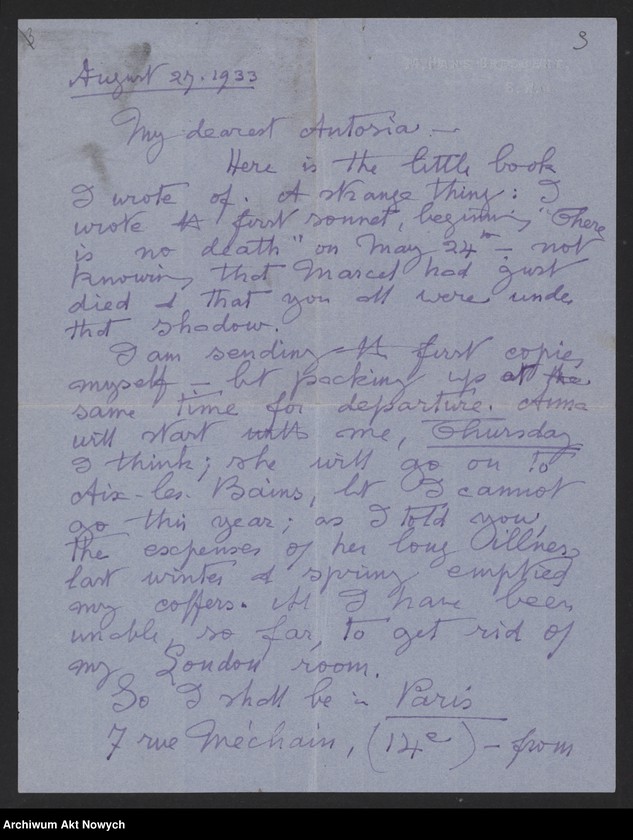 3
August 27. 1933
My dearest Antosia —
Here is the little book
I wrote of. A strange thing: I
wrote the first sonnet, beginning "There
is no death" on May 24th — not
knowing that Marcel had just
died & that you all were under
that shadow.
I am sending the first copies
myself — but packing up at the
same time for departure. Anna
will start with me, Thursday
I think; she will go on to
Aix-les-Bains, but I cannot
go this year; as I told you,
the expenses of her long illness
last winter & spring emptied
my coffers. And I have been
unable, so far, to get rid of
my London room.
So I shall be in Paris
7 rue Méchain, (14e) — from
Archiwum Akt Nowych